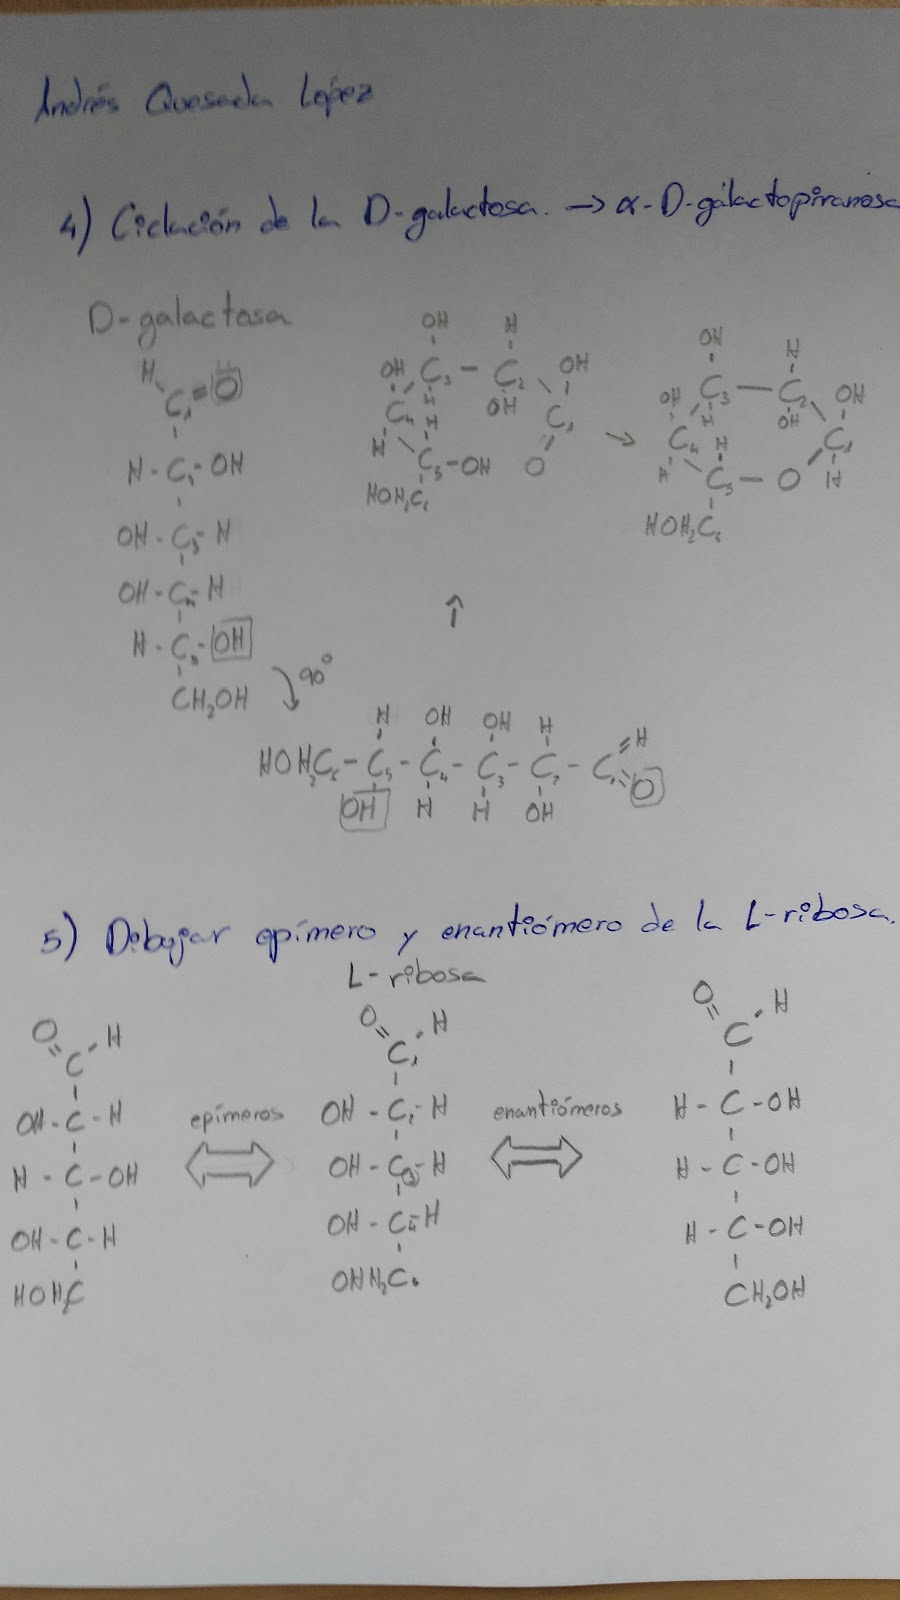 Andrés Quesada López
4) Ciclación de la D-galactosa. → α-D-galactopiranosa
D-galactosa
H
C₁=O
H-C-OH
OH-C₃-H
OH-C₄-H
H-C₅-OH
CH₂OH
90°
OH H
OH C₃-C₂ OH
C₄ H OH C₁
H C₅-OH O
HOH₂C₆
→
OH H
OH C₃-C₂ OH
C₄ H H OH C₁
H C₅-O H
HOH₂C₆
↑
H OH OH H H
HOH₂C₆-C₅-C₄-C₃-C₂-C₁
OH H H OH O
5) Dibujar epímero y enantiómero de la L-ribosa.
L-ribosa
O H
C
OH-C-H
H-C-OH
OH-C-H
HOH₂C
epímeros
O H
C₁
OH-C₂-H
OH-C₃-H
OH-C₄-H
OHH₂C₅
enantiómeros
O H
C
H-C-OH
H-C-OH
H-C-OH
CH₂OH